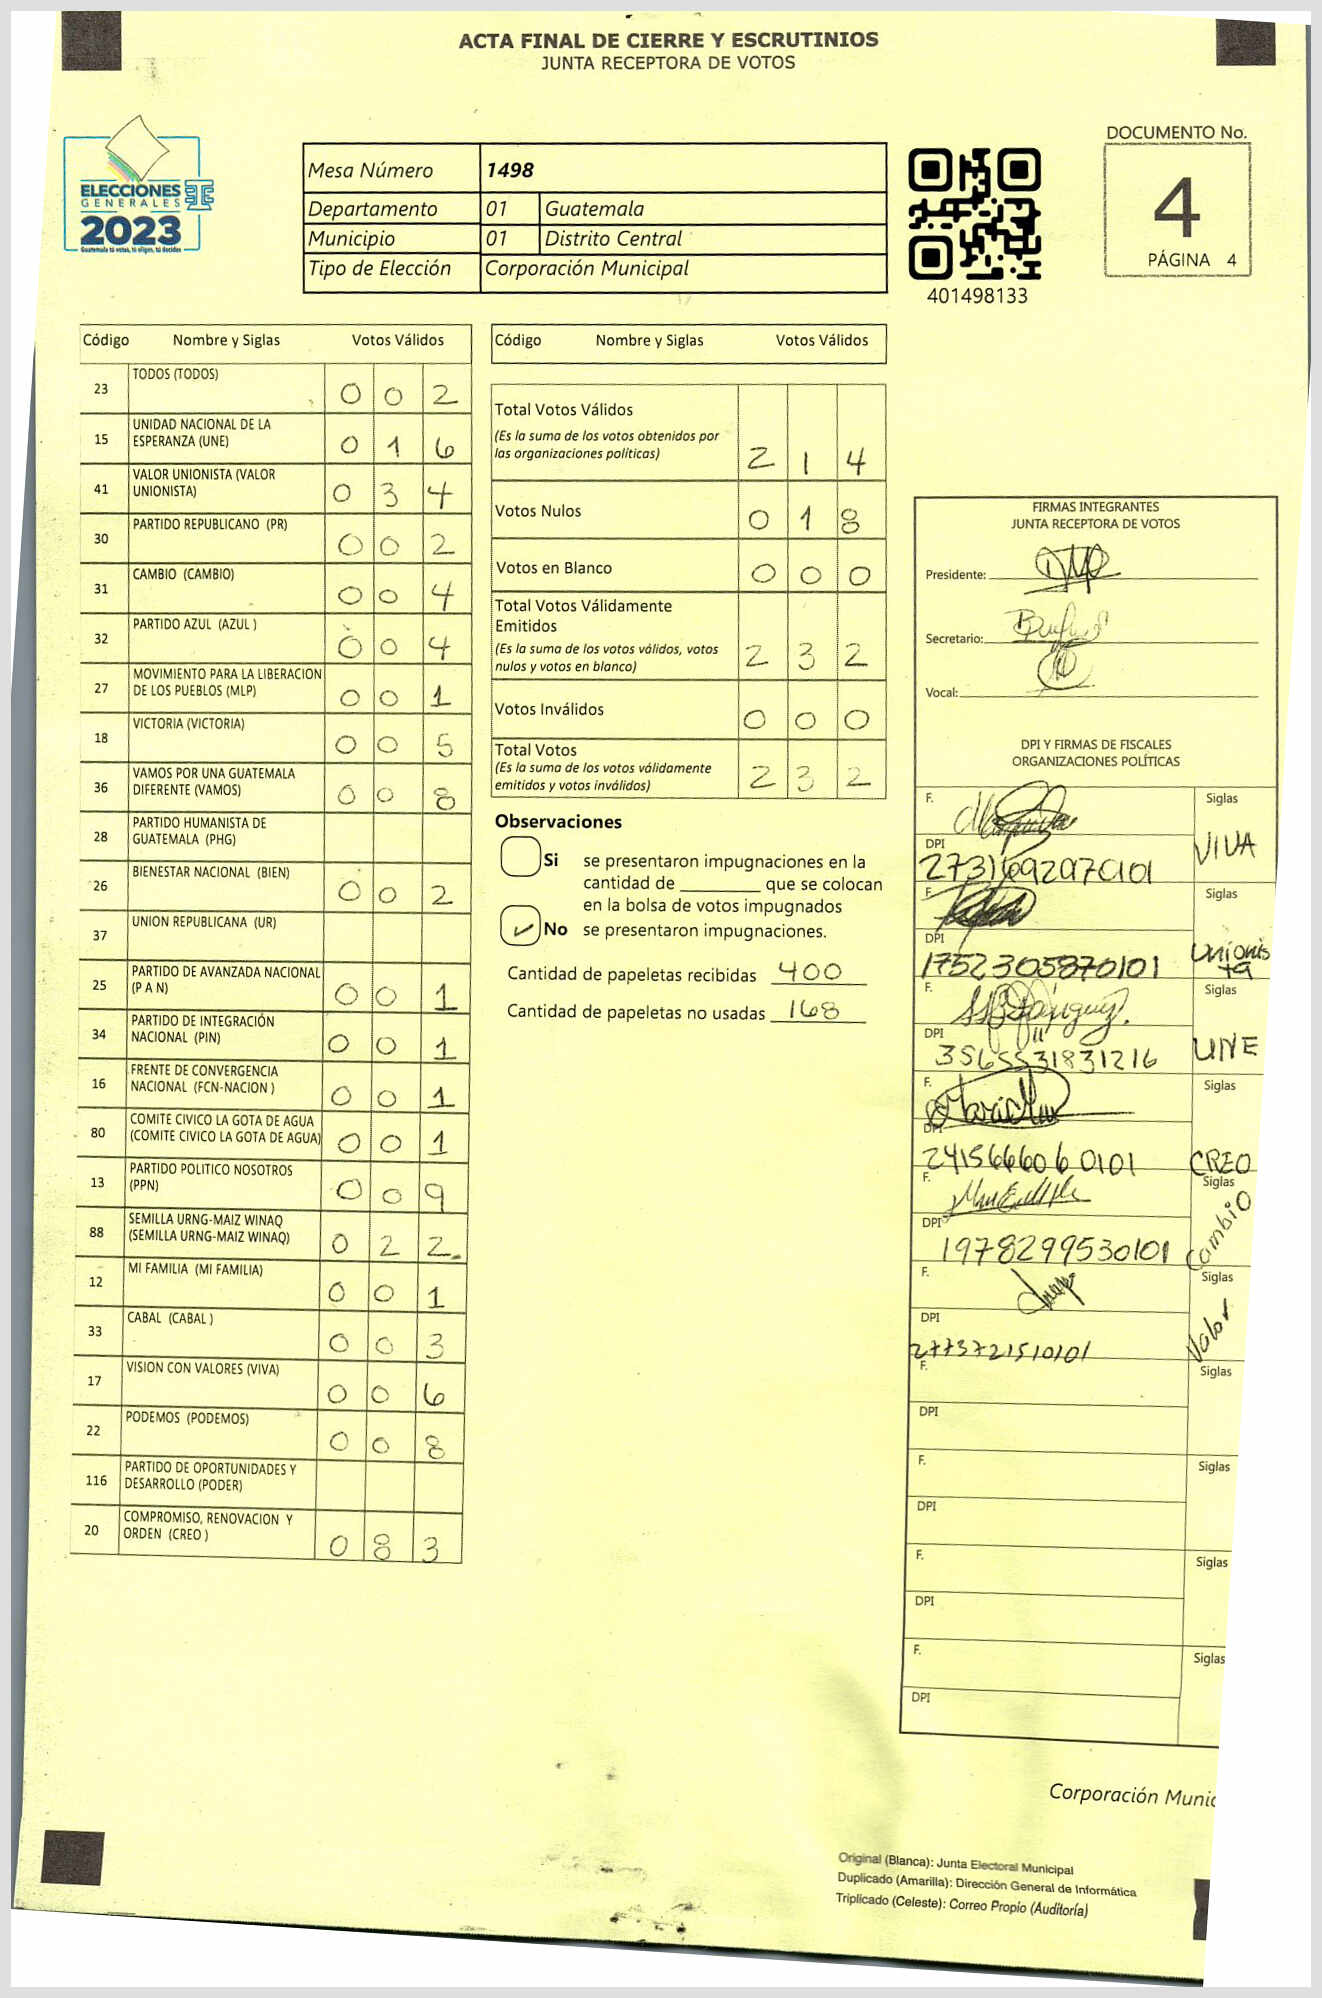 ACTA FINAL DE CIERRE Y ESCRUTINIOS
JUNTA RECEPTORA DE VOTOS
ELECCIONES
GENERALES
2023
Guatemala tú votas, tú eliges, tú decides
Mesa Número 1498
Departamento 01 Guatemala
Municipio 01 Distrito Central
Tipo de Elección Corporación Municipal
401498133
DOCUMENTO No.
4
PÁGINA 4
Código Nombre y Siglas Votos Válidos
23 TODOS (TODOS) 0 0 2
15 UNIDAD NACIONAL DE LA
ESPERANZA (UNE) 0 1 6
41 VALOR UNIONISTA (VALOR
UNIONISTA) 0 3 4
30 PARTIDO REPUBLICANO (PR) 0 0 2
31 CAMBIO (CAMBIO) 0 0 4
32 PARTIDO AZUL (AZUL ) 0 0 4
27 MOVIMIENTO PARA LA LIBERACION
DE LOS PUEBLOS (MLP) 0 0 1
18 VICTORIA (VICTORIA) 0 0 5
36 VAMOS POR UNA GUATEMALA
DIFERENTE (VAMOS) 0 0 8
28 PARTIDO HUMANISTA DE
GUATEMALA (PHG)
26 BIENESTAR NACIONAL (BIEN) 0 0 2
37 UNION REPUBLICANA (UR)
25 PARTIDO DE AVANZADA NACIONAL
(P A N) 0 0 1
34 PARTIDO DE INTEGRACIÓN
NACIONAL (PIN) 0 0 1
16 FRENTE DE CONVERGENCIA
NACIONAL (FCN-NACION ) 0 0 1
80 COMITE CIVICO LA GOTA DE AGUA
(COMITE CIVICO LA GOTA DE AGUA) 0 0 1
13 PARTIDO POLITICO NOSOTROS
(PPN) 0 0 9
88 SEMILLA URNG-MAIZ WINAQ
(SEMILLA URNG-MAIZ WINAQ) 0 2 2
12 MI FAMILIA (MI FAMILIA) 0 0 1
33 CABAL (CABAL ) 0 0 3
17 VISION CON VALORES (VIVA) 0 0 6
22 PODEMOS (PODEMOS) 0 0 8
116 PARTIDO DE OPORTUNIDADES Y
DESARROLLO (PODER)
20 COMPROMISO, RENOVACION Y
ORDEN (CREO ) 0 8 3
Código Nombre y Siglas Votos Válidos
Total Votos Válidos
(Es la suma de los votos obtenidos por
las organizaciones políticas) 2 1 4
Votos Nulos 0 1 8
Votos en Blanco 0 0 0
Total Votos Válidamente
Emitidos
(Es la suma de los votos válidos, votos
nulos y votos en blanco) 2 3 2
Votos Inválidos 0 0 0
Total Votos
(Es la suma de los votos válidamente
emitidos y votos inválidos) 2 3 2
Observaciones
Si se presentaron impugnaciones en la
cantidad de ________ que se colocan
en la bolsa de votos impugnados
No se presentaron impugnaciones.
Cantidad de papeletas recibidas 400
Cantidad de papeletas no usadas 168
FIRMAS INTEGRANTES
JUNTA RECEPTORA DE VOTOS
Presidente:
Secretario:
Vocal:
DPI Y FIRMAS DE FISCALES
ORGANIZACIONES POLÍTICAS
F. Siglas
DPI VIVA
2731692970101
F. Siglas
DPI Unionis
ta
1752305870101
F. Siglas
DPI UNE
3565531831216
F. Siglas
DPI
2415666060101 CREO
F. Siglas
DPI Cambio
1978299530101
F. Siglas
DPI Valor
2773721510101
F. Siglas
DPI
F. Siglas
DPI
F. Siglas
DPI
F. Siglas
DPI
Corporación Munic
Original (Blanca): Junta Electoral Municipal
Duplicado (Amarilla): Dirección General de Informática
Triplicado (Celeste): Correo Propio (Auditoría)